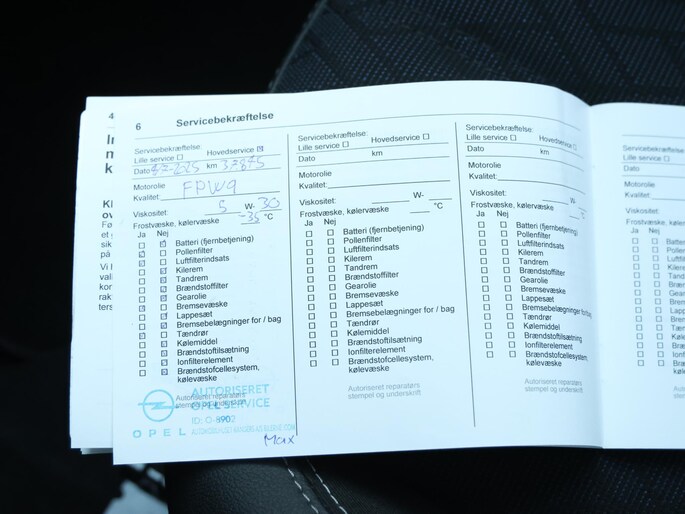 6 Servicebekræftelse
Servicebekræftelse:
Lille service Hovedservice
Dato 8/7-2025 km 37875
Motorolie
Kvalitet: FPW9
Viskositet: 5 W- 30
Frostvæske, kølervæske -35 °C
Ja Nej
Batteri (fjernbetjening)
Pollenfilter
Luftfilterindsats
Kilerem
Tandrem
Brændstoffilter
Gearolie
Bremsevæske
Lappesæt
Bremsebelægninger for / bag
Tændrør
Kølemiddel
Brændstoftilsætning
Ionfilterelement
Brændstofcellesystem,
kølevæske
Autoriseret reparatørs
stempel og underskrift
AUTORISERET
OPEL SERVICE
ID: O-8902
OPEL
Max
Servicebekræftelse:
Lille service Hovedservice
Dato km
Motorolie
Kvalitet:
Viskositet: W-
Frostvæske, kølervæske °C
Ja Nej
Batteri (fjernbetjening)
Pollenfilter
Luftfilterindsats
Kilerem
Tandrem
Brændstoffilter
Gearolie
Bremsevæske
Lappesæt
Bremsebelægninger for / bag
Tændrør
Kølemiddel
Brændstoftilsætning
Ionfilterelement
Brændstofcellesystem,
kølevæske
Autoriseret reparatørs
stempel og underskrift
Servicebekræftelse:
Lille service Hovedservice
Dato km
Motorolie
Kvalitet:
Viskositet: W-
Frostvæske, kølervæske °C
Ja Nej
Batteri (fjernbetjening)
Pollenfilter
Luftfilterindsats
Kilerem
Tandrem
Brændstoffilter
Gearolie
Bremsevæske
Lappesæt
Bremsebelægninger for / bag
Tændrør
Kølemiddel
Brændstoftilsætning
Ionfilterelement
Brændstofcellesystem,
kølevæske
Autoriseret reparatørs
stempel og underskrift